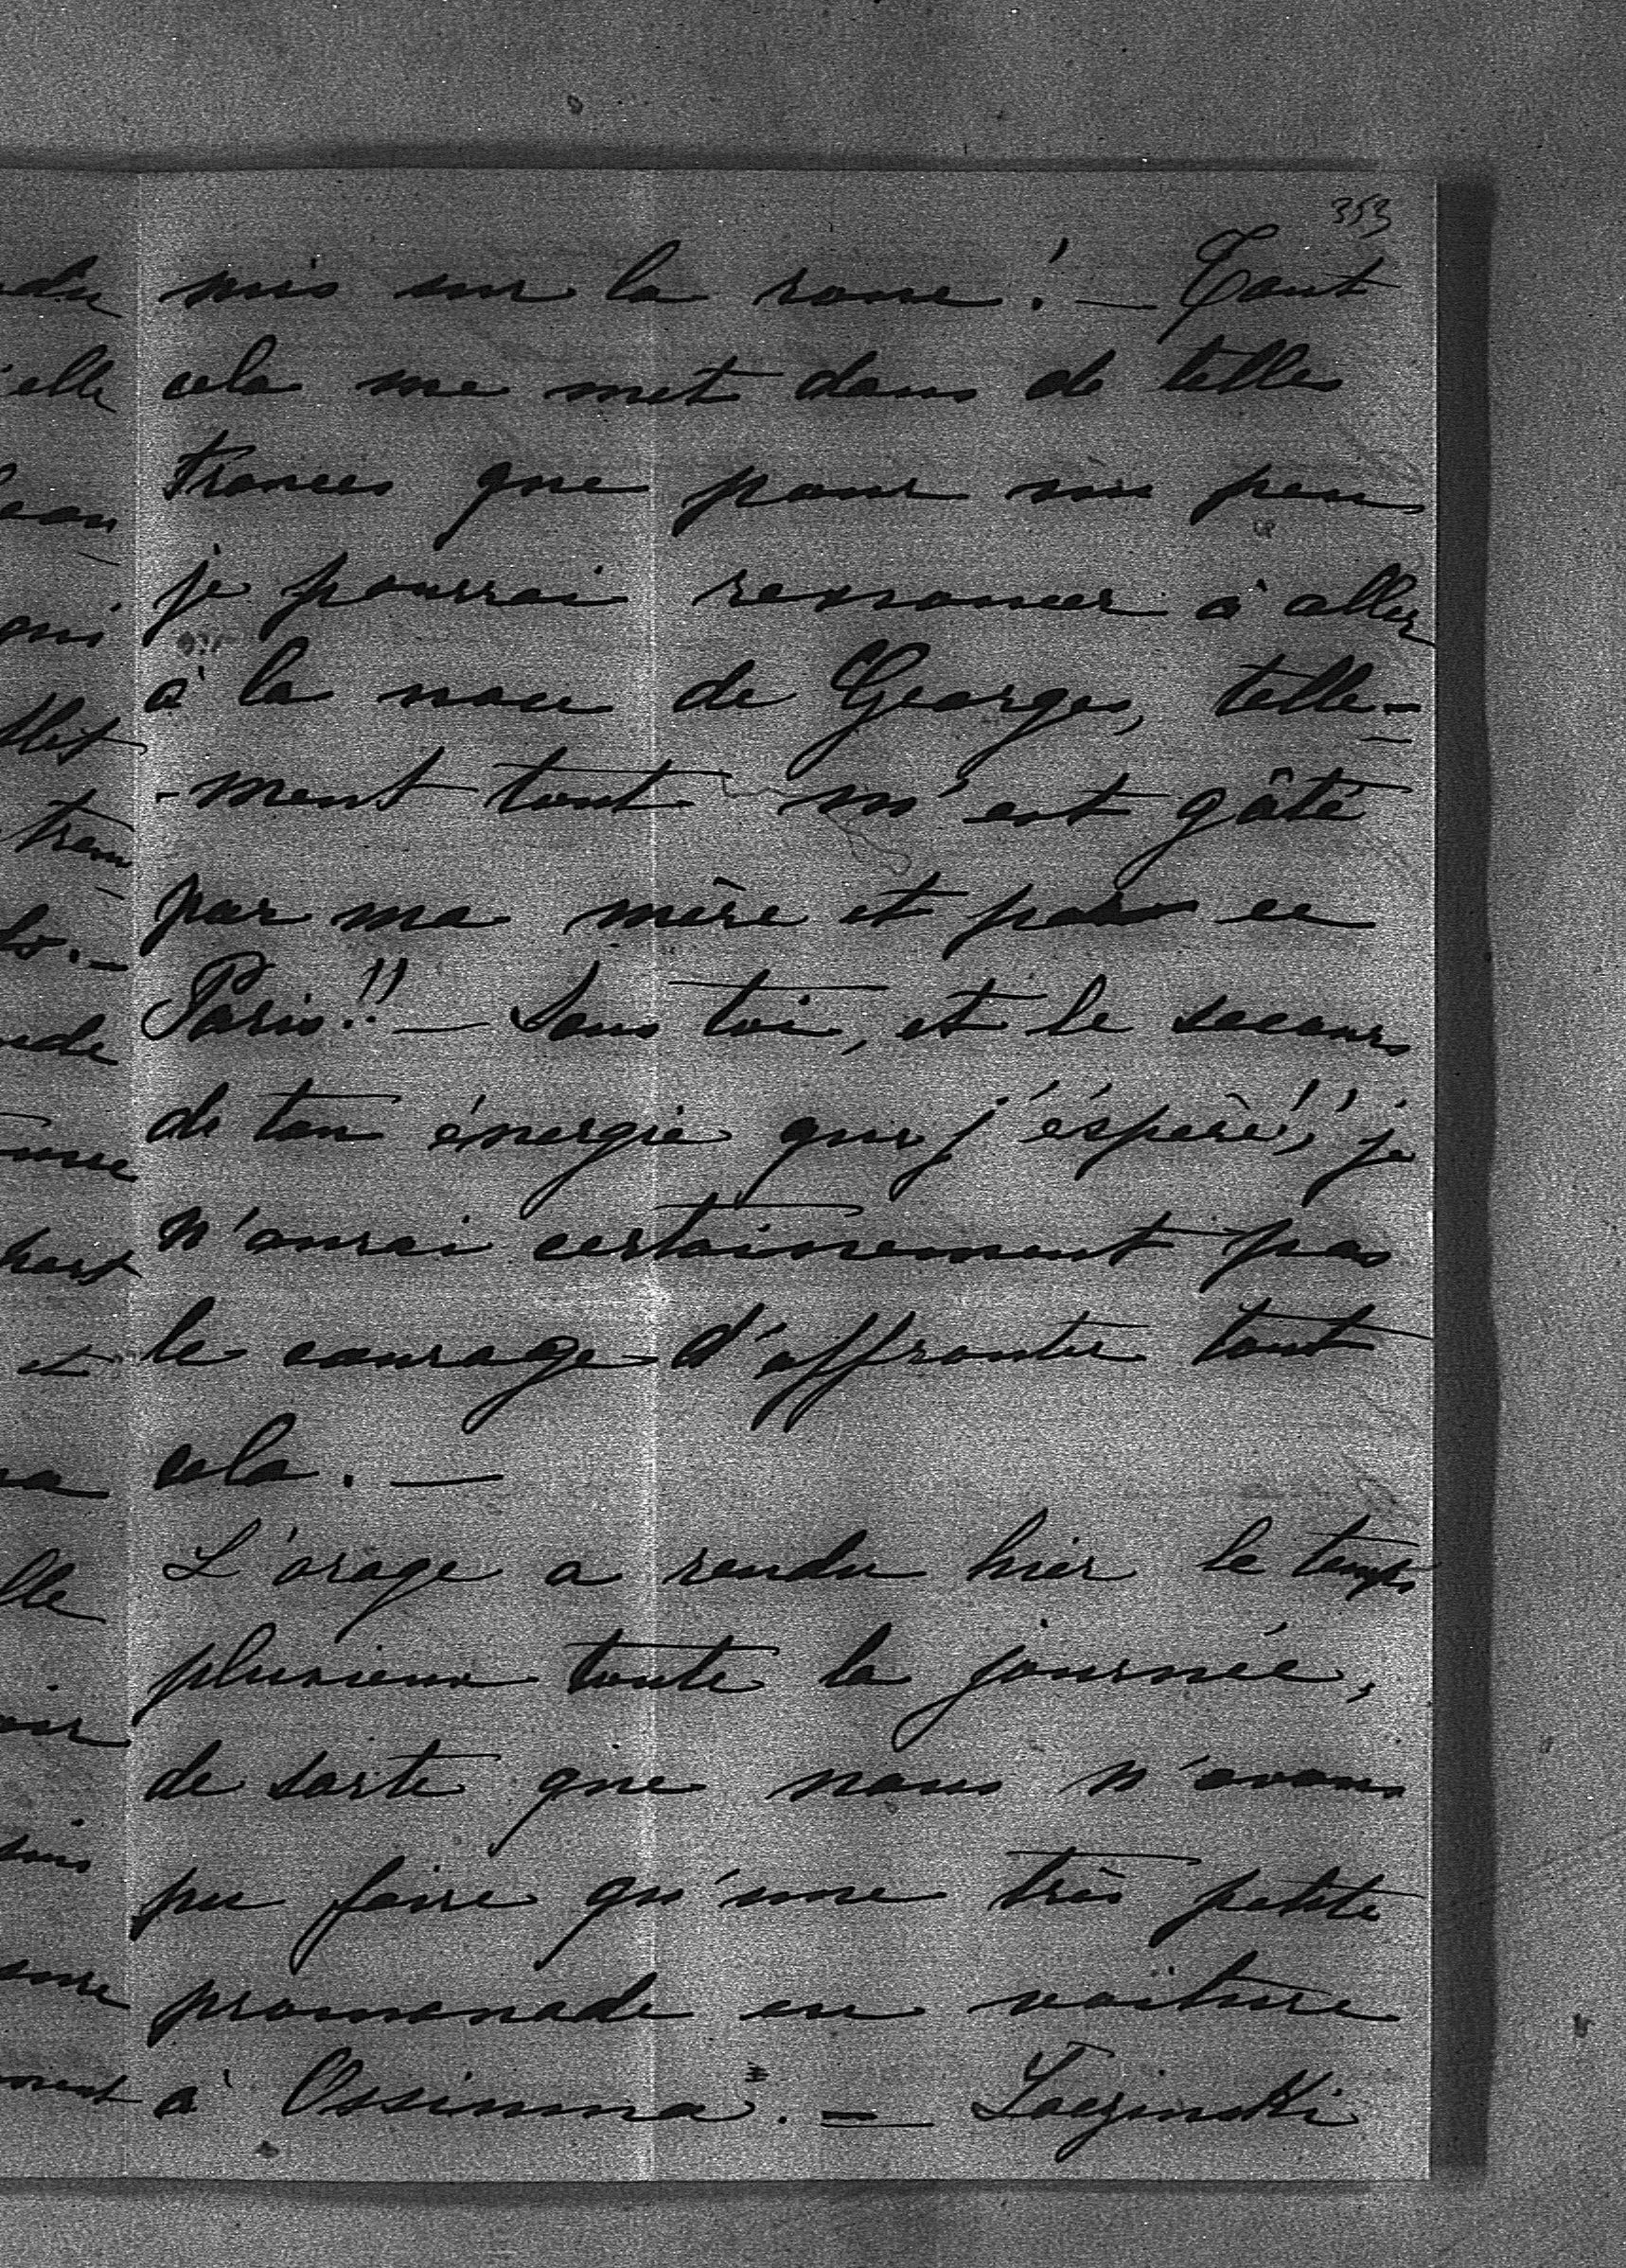 353
mis sur la roue! — Tout
cela me met dans de telles
trances que pour un peu
je pourrai renoncer à aller
à la noce de Georges, telle-
-ment tout m'est gâté
par ma mère et par ce
Paris!! — Sans toi, et le secours
de ton énergie que j'éspère!, je
n'aurai certainement pas
le courage d'affronter tout
cela. —
L'orage a rendu hier le temps
pluvieux toute la journée,
de sorte que nous n'avons
pu faire qu'une très petite
promenade en voiture
à Ossinina. —